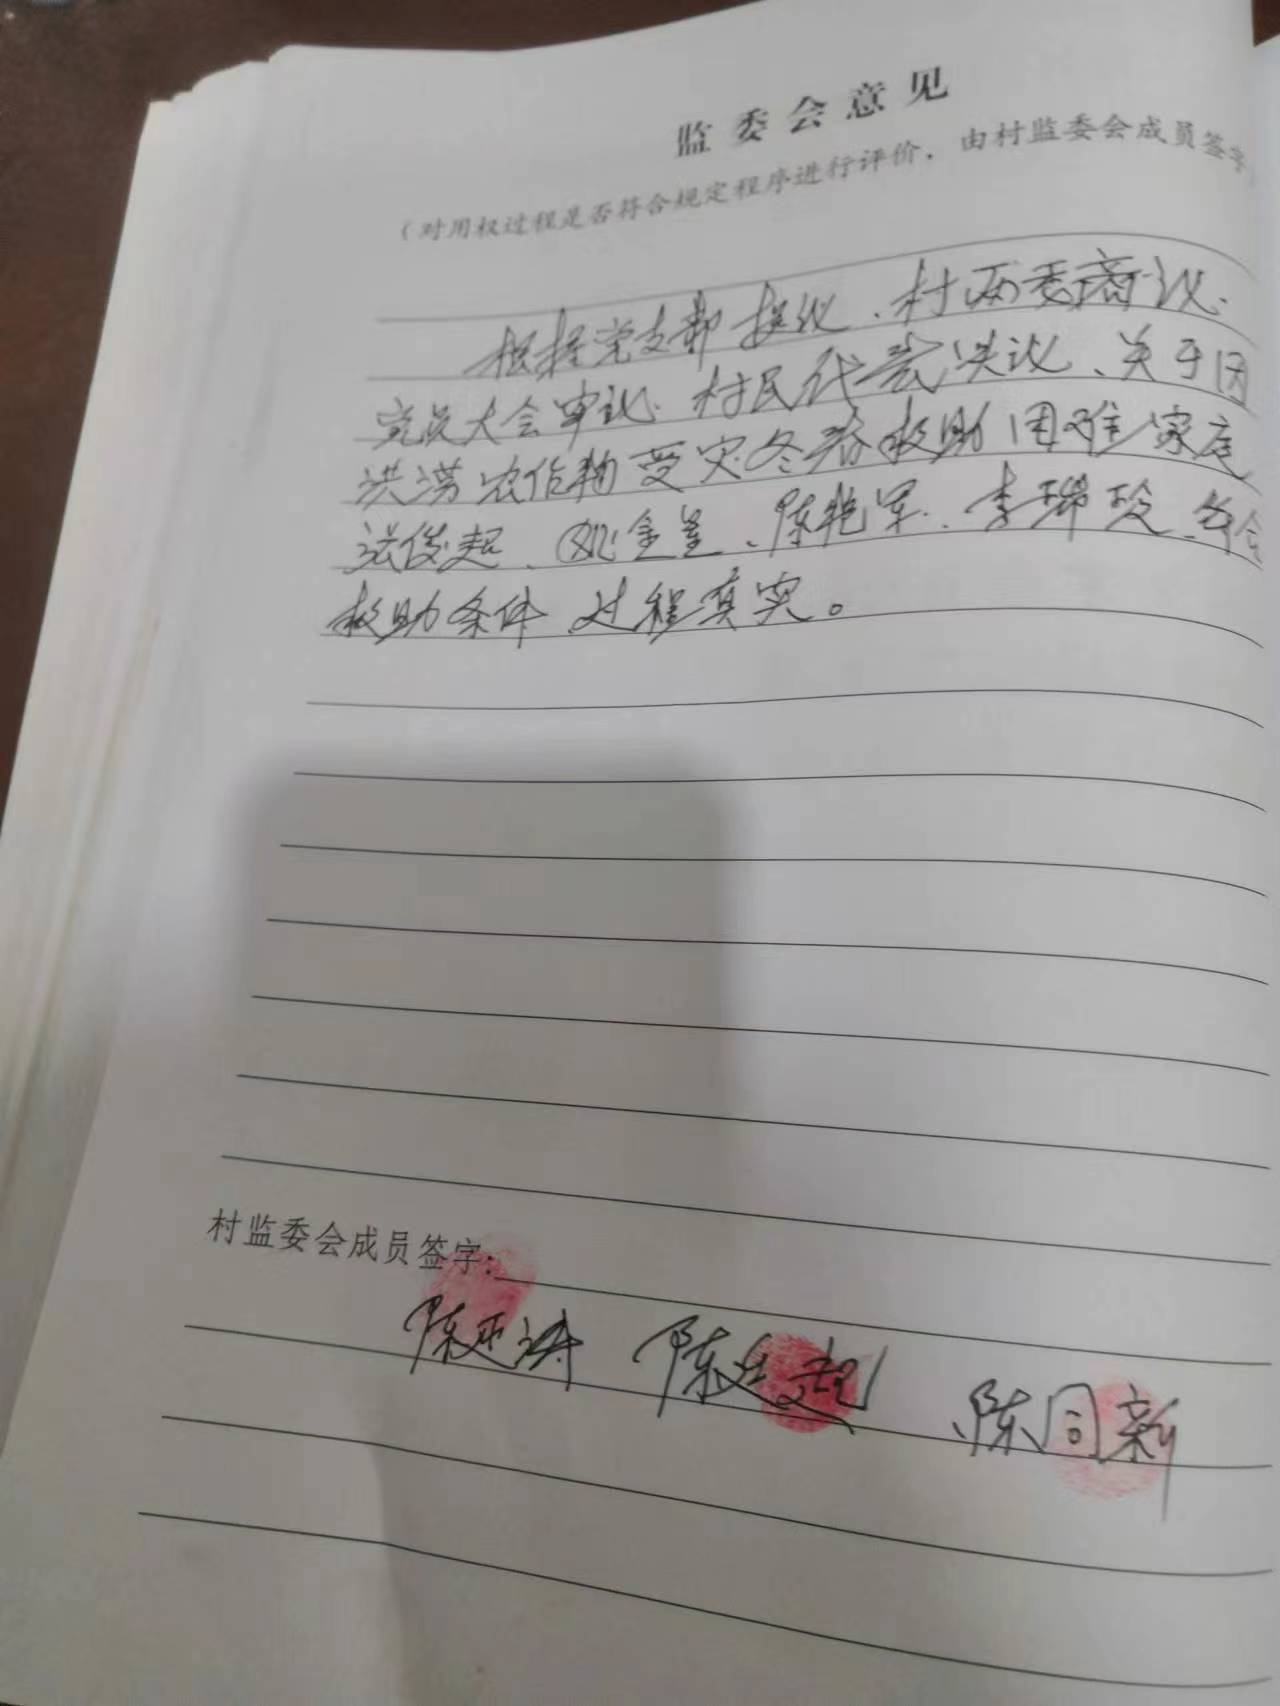 监委会意见
（对用权过程是否符合规定程序进行评价，由村监委会成员签字
根据党支部提议、村两委商议、
党员大会审议、村民代表决议、关于因
洪涝农作物受灾冬春救助困难家庭
张俊起、金、陈艳军、李瑞玲、符合
救助条件、过程真实。
村监委会成员签字：
陈亚涛 陈起 陈同新